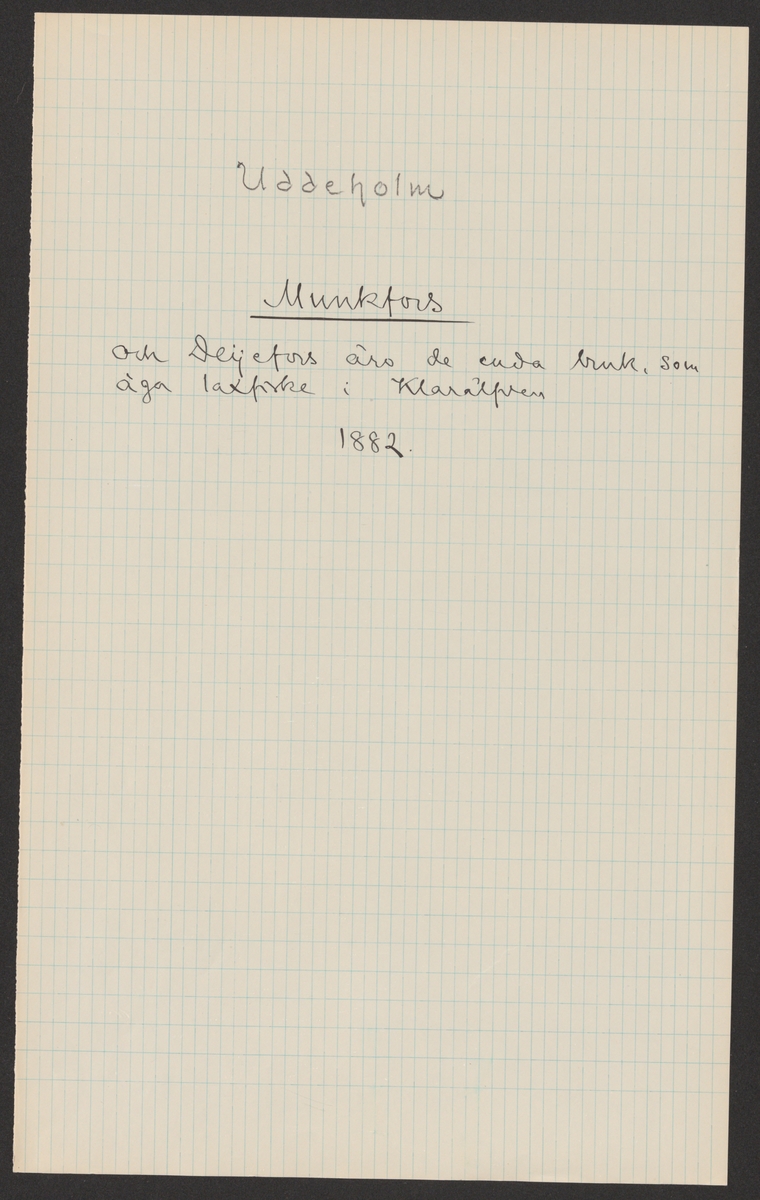 Uddeholm
Munkfors
och Deijefors äro de enda bruk, som
äga laxfiske i Klarälfven
1882.